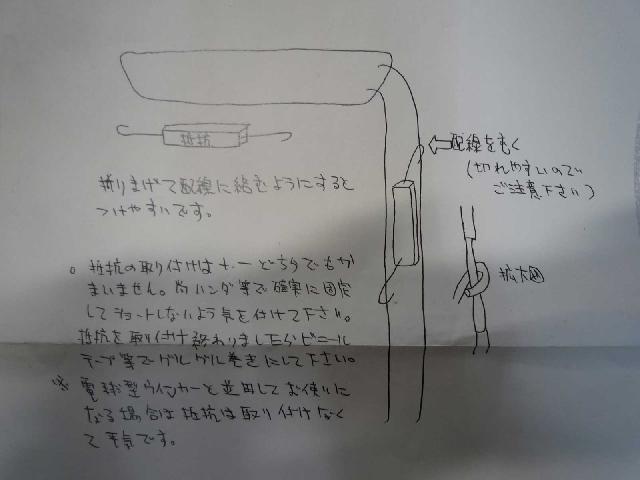 抵抗
折りまげて配線に絡むようにすると
つけやすいです。
配線をむく
(切れやすいので
ご注意下さい)
拡大図
○ 抵抗の取り付けは+-どちらでもか
まいません。尚ハンダ等で確実に固定
してショートしないよう気を付けて下さい。
抵抗を取り付け終わりましたらビニール
テープ等でグルグル巻きにして下さい。
※ 電球型ウインカーと並用してお使いに
なる場合は抵抗は取り付けなく
て平気です。